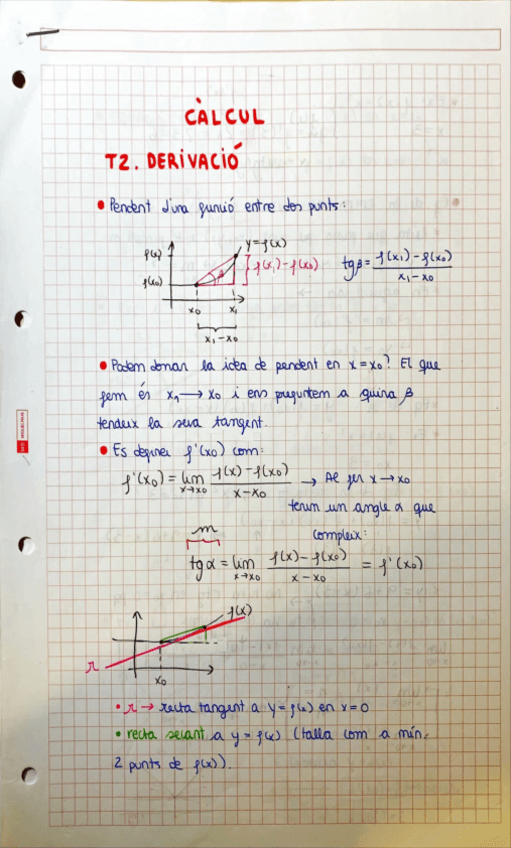 CÀLCUL
T2. DERIVACIÓ
• Pendent d'una funció entre dos punts:
y=f(x)
f(x₁)
f(x₁)-f(x₀)
β
f(x₀)
x₀ x₁
x₁-x₀
tgβ = f(x₁)-f(x₀) / x₁-x₀
• Podem donar la idea de pendent en x=x₀? El que
fem és x₁ → x₀ i ens preguntem a quina β
tendeix la seva tangent.
• Es defineix f'(x₀) com:
f'(x₀) = lim x→x₀ f(x)-f(x₀) / x-x₀ → Al fer x→x₀
tenim un angle α que
compleix:
m
tgα = lim x→x₀ f(x)-f(x₀) / x-x₀ = f'(x₀)
f(x)
r
x₀
• r → recta tangent a y=f(x) en x=0
• recta secant a y=f(x) (talla com a mín.
2 punts de f(x)).